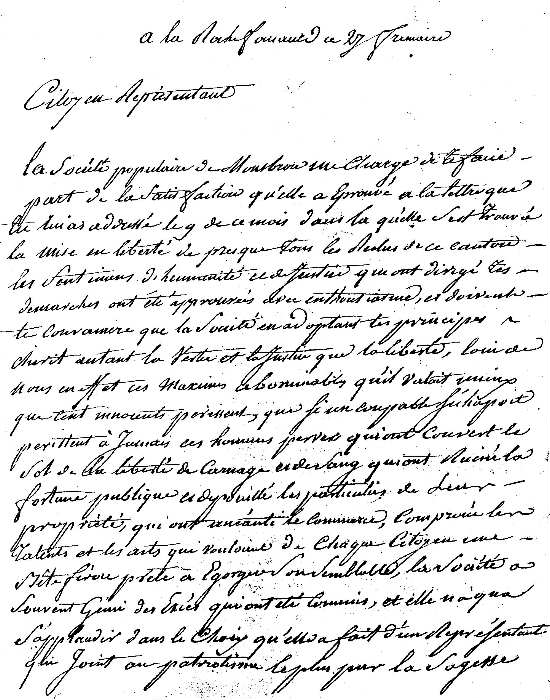 a la Rochefoucauld ce 27 frimaire
Citoyen Représentant
la Société populaire de Montbron me Charge de te faire
part de la Satisfaction qu'elle a Eprouvé a la lettre que
tu lui as addressé le 9 de ce mois dans la quelle s'est trouvée
la mise en liberté de presque tous les Reclus de ce canton
les Sentimens d'humanité et de Justice qui ont dirigé tes
demarches ont été approuvés avec enthousiasme, et doivent
te Convaincre que la Société en adoptant tes principes
cherit autant la Vertu et la Justice que la liberté, loin de
nous en effet ces Maximes abominables qu'il valait mieux
que cent innocents perissent, que si un coupable S'échapoit
perissent à Jamais ces hommes pervers qui ont Couvert le
Sol de la liberté de Carnage et de Sang qui ont Ruiné la
fortune publique et depouillé les particuliers de Leur
propriété, que ont anéanti le commerce, Comprimé les
talents et les arts qui vouloient de Chaque Citoyen une
bête féroce prête a Egorger Son Semblable, la Société a
Souvent Gémi des Excès qui ont été Commis, et elle n'a qu'a
S'applaudir dans le Choix qu'elle a fait d'un Représentant
qui Joint au patriotisme le plus pur la Sagesse